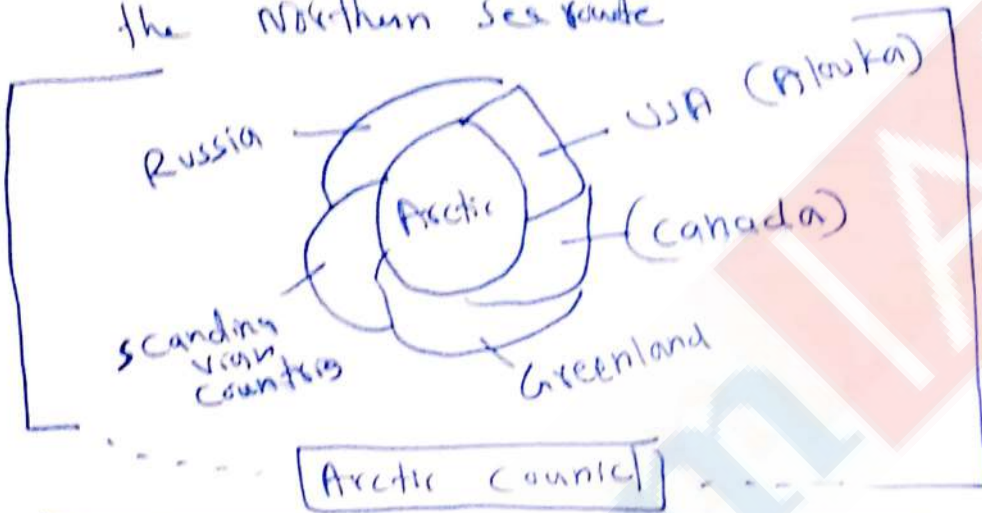 the Northern Sea route
Russia
USA (Alaska)
Arctic
(Canada)
Scandina
vian
Countries
Greenland
Arctic Counicl